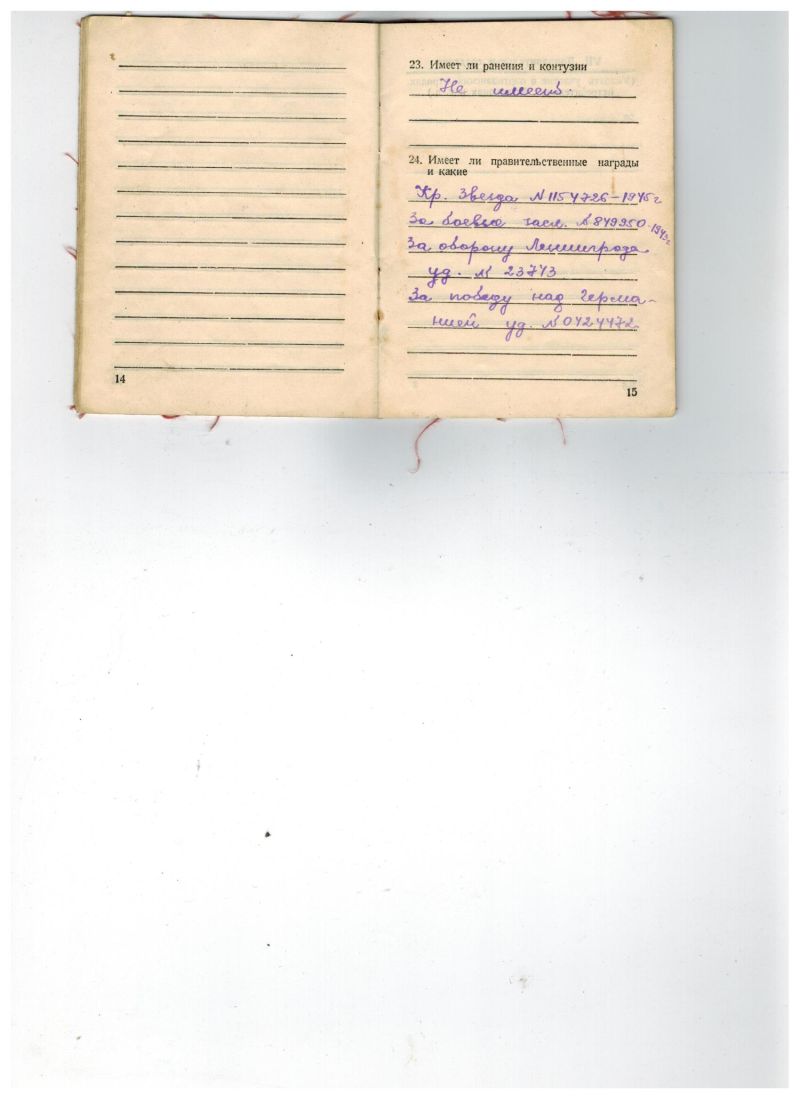 14
23. Имеет ли ранения и контузии
Не имеет.
24. Имеет ли правительственные награды
и какие
Кр. Звезда N 1154726 – 1945 г
За боевые засл. N 849950 - 1943 г.
За оборону Ленинграда
уд. N 23743
За победу над Герма-
нией уд. N 0424472
15